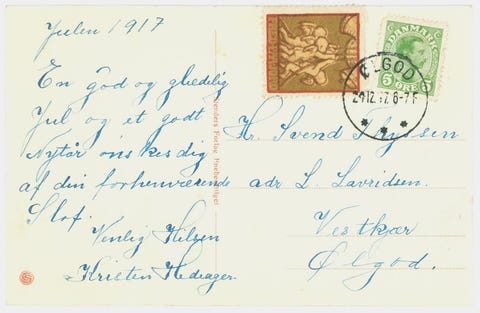 Julen 1917
En god og glædelig
Jul og et godt
Nytår ønskes dig
af din forhenværende
Venlig Hilsen
Kristen Hedeager.
DANMARK
5 ØRE 5
ØLGOD
24.12.17. 6-7 F
Hr. Svend Thyssen
adr L. Lavridsen.
Vestkær
Ølgod.